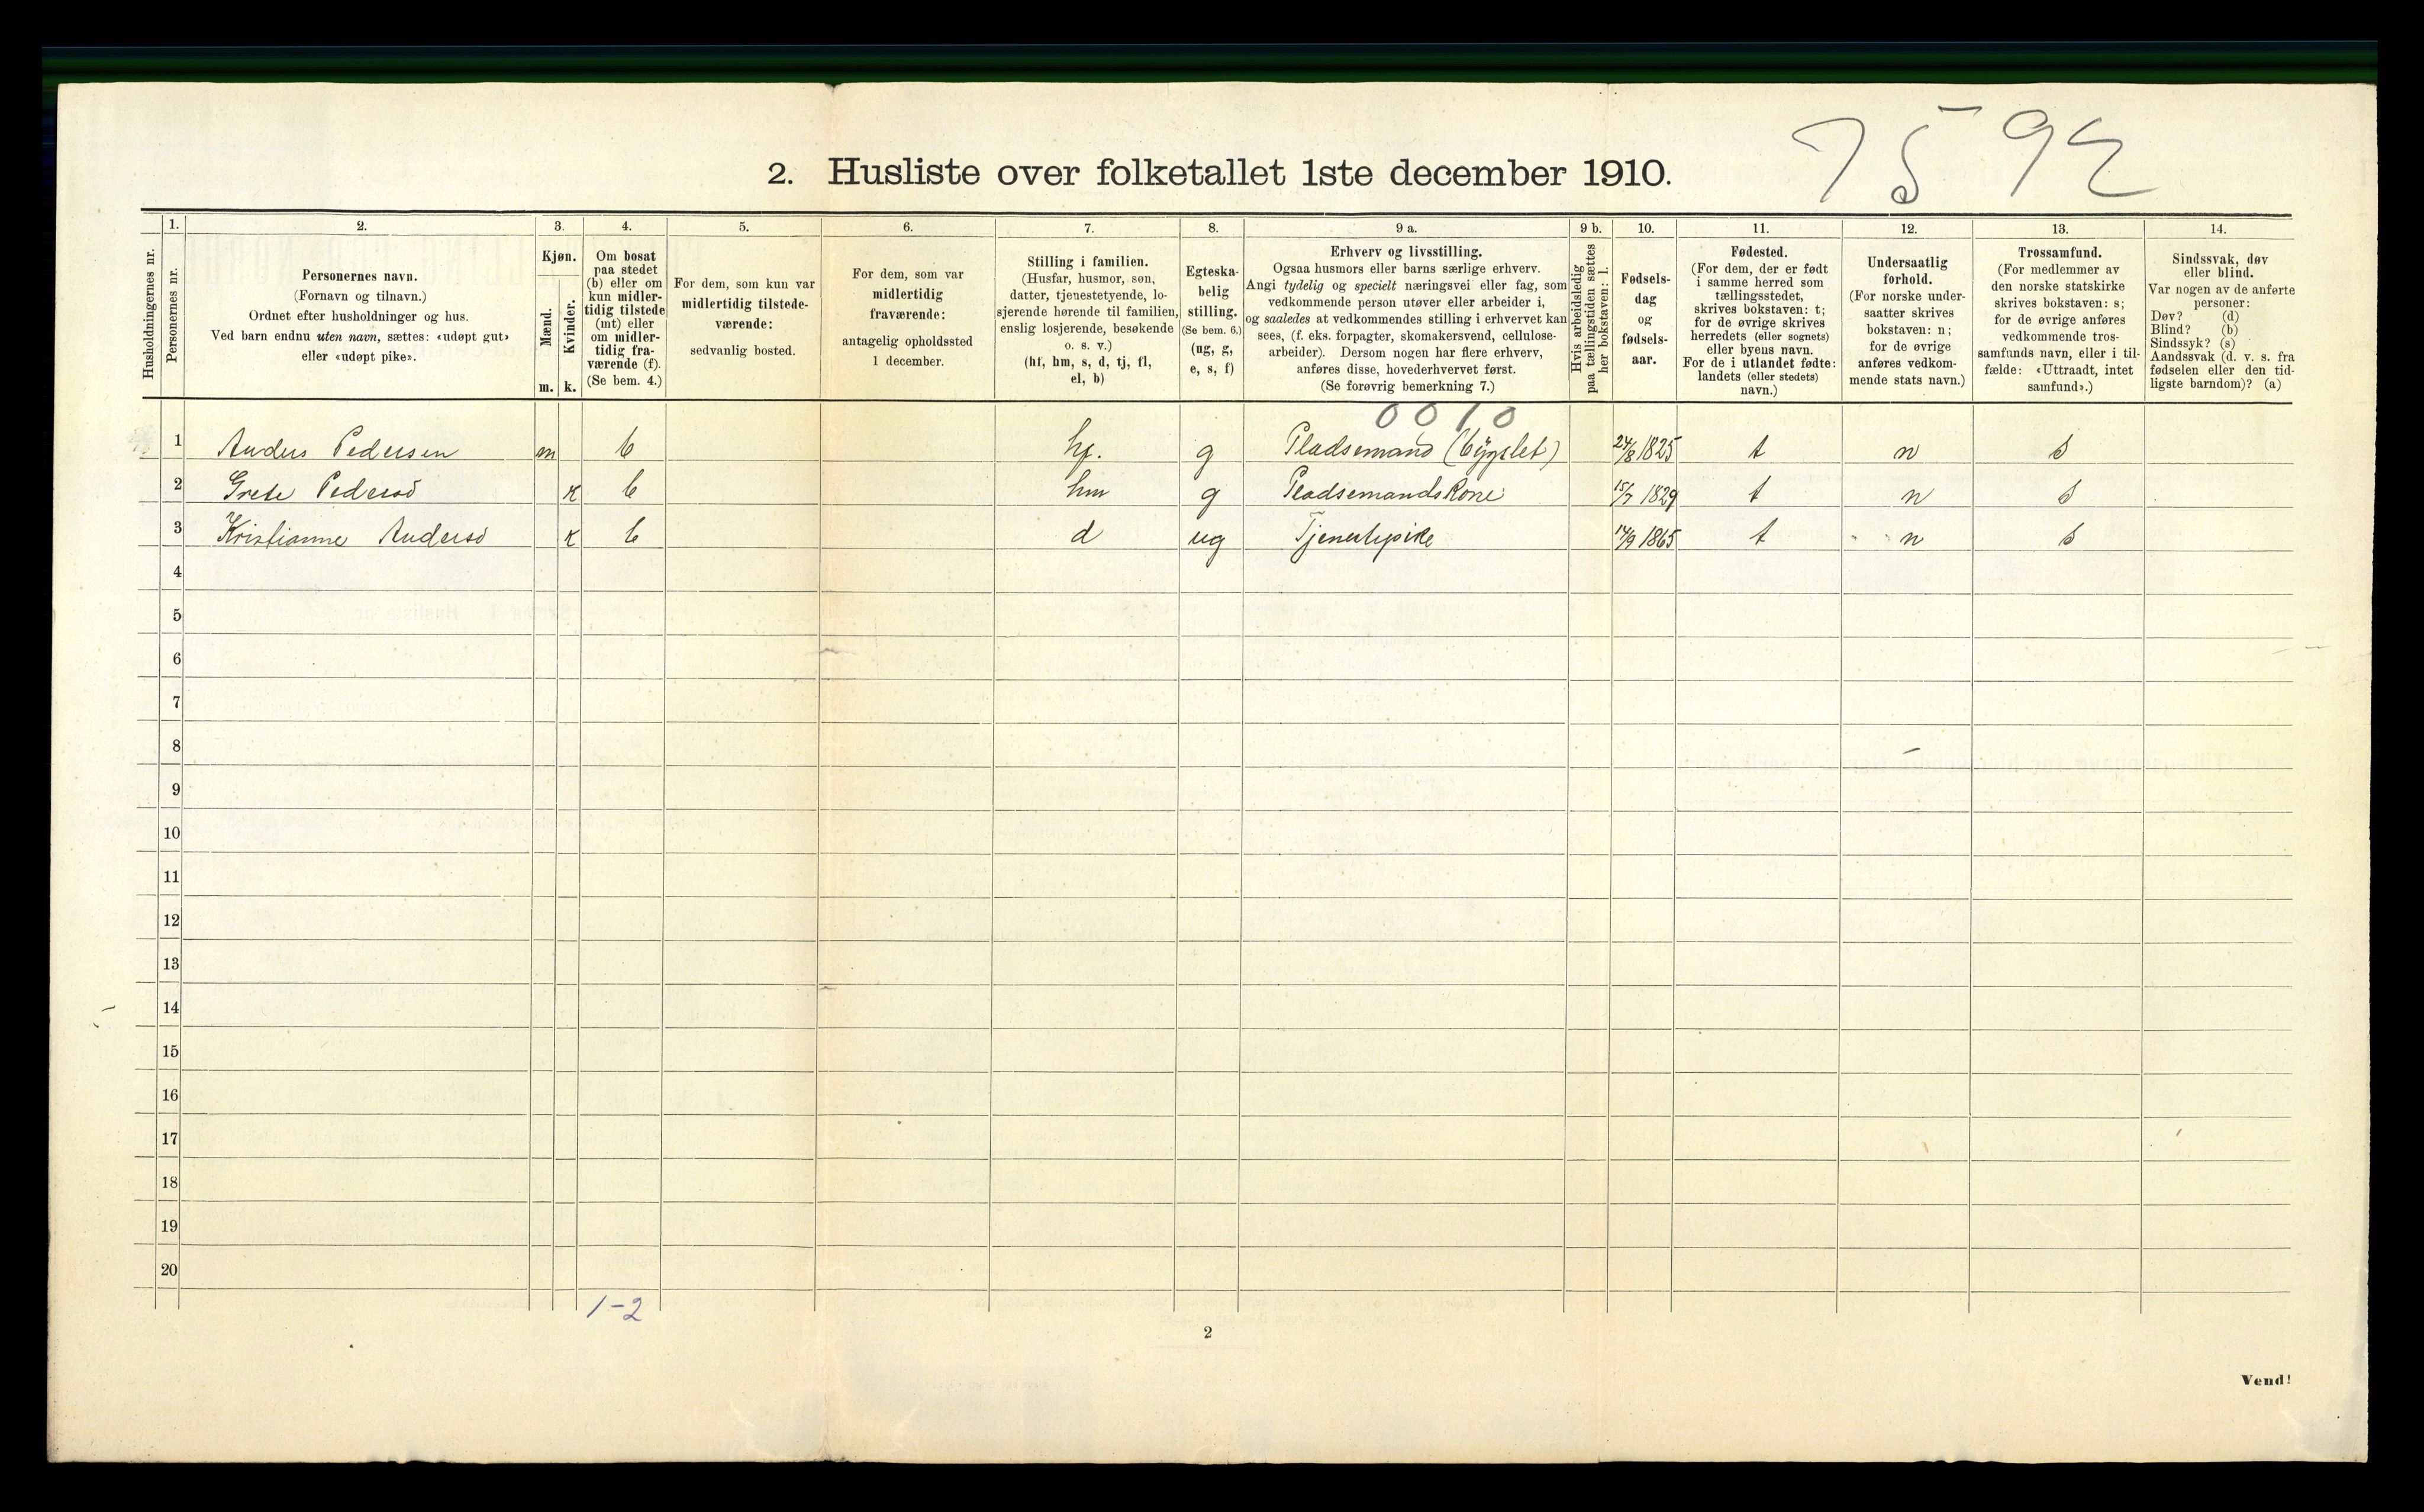 7592
2. Husliste over folketallet 1ste december 1910.
Husholdningernes nr.
1.
Personernes nr.
2.
Personernes navn.
(Fornavn og tilnavn.)
Ordnet efter husholdninger og hus.
Ved barn endnu uten navn, sættes: «udøpt gut»
eller «udøpt pike».
3.
Kjøn.
Mænd.
m.
Kvinder.
k.
4.
Om bosat
paa stedet
(b) eller om
kun midler-
tidig tilstede
(mt) eller
om midler-
tidig fra-
værende (f).
(Se bem. 4.)
5.
For dem, som kun var
midlertidig tilstede-
værende:
sedvanlig bosted.
6.
For dem, som var
midlertidig
fraværende:
antagelig opholdssted
1 december.
7.
Stilling i familien.
(Husfar, husmor, søn,
datter, tjenestetyende, lo-
sjerende hørende til familien,
enslig losjerende, besøkende
o. s. v.)
(hf, hm, s, d, tj, fl,
el, b)
8.
Egteska-
belig
stilling.
(Se bem. 6.)
(ug, g,
e, s, f)
9 a.
Erhverv og livsstilling.
Ogsaa husmors eller barns særlige erhverv.
Angi tydelig og specielt næringsvei eller fag, som
vedkommende person utøver eller arbeider i,
og saaledes at vedkommendes stilling i erhvervet kan
sees, (f. eks. forpagter, skomakersvend, cellulose-
arbeider). Dersom nogen har flere erhverv,
anføres disse, hovederhvervet først.
(Se forøvrig bemerkning 7.)
9 b.
Hvis arbeidsledig
paa tællingstiden sættes
her bokstaven: l.
10.
Fødsels-
dag
og
fødsels-
aar.
11.
Fødested.
(For dem, der er født
i samme herred som
tællingsstedet,
skrives bokstaven: t;
for de øvrige skrives
herredets (eller sognets)
eller byens navn.
For de i utlandet fødte:
landets (eller stedets)
navn.)
12.
Undersaatlig
forhold.
(For norske under-
saatter skrives
bokstaven: n;
for de øvrige
anføres vedkom-
mende stats navn.)
13.
Trossamfund.
(For medlemmer av
den norske statskirke
skrives bokstaven: s;
for de øvrige anføres
vedkommende tros-
samfunds navn, eller i til-
fælde: «Uttraadt, intet
samfund».)
14.
Sindssvak, døv
eller blind.
Var nogen av de anførte
personer:
Døv? (d)
Blind? (b)
Sindssyk? (s)
Aandssvak (d. v. s. fra
fødselen eller den tid-
ligste barndom)? (a)
0010
1 Anders Pedersen m b hf. g Pladsemand (bygslet) 24/8 1825 t n s
2 Grete Pedersd k b hm g Pladsemandskone 15/7 1829 t n s
3 Kristianne Andersd k b d ug Tjenestepike 14/9 1865 t n s
4
5
6
7
8
9
10
11
12
13
14
15
16
17
18
19
20
1-2
2
Vend!